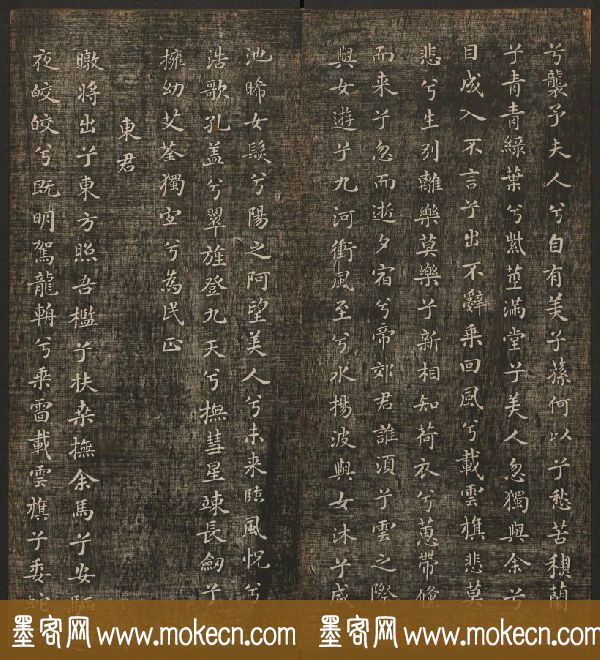 兮襲予夫人兮自有美子蓀何以兮愁苦秋蘭
兮青青綠葉兮紫莖滿堂兮美人忽獨與余兮
目成入不言兮出不辭乘回風兮載雲旗悲莫
悲兮生別離樂莫樂兮新相知荷衣兮蕙帶儵
而来兮忽而逝夕宿兮帝郊君誰須兮雲之際
與女遊兮九河衝風至兮水揚波與女沐兮咸
池晞女髮兮陽之阿望美人兮未来臨風怳兮
浩歌孔盖兮翠旌登九天兮撫彗星竦長劒兮
擁幼艾荃獨宜兮為民正
東君
暾将出兮東方照吾檻兮扶桑撫余馬兮安驅
夜皎皎兮既明駕龍輈兮乘雷載雲旗兮委蛇
墨客网 www.mokecn.com 墨客网 www.mokecn.com